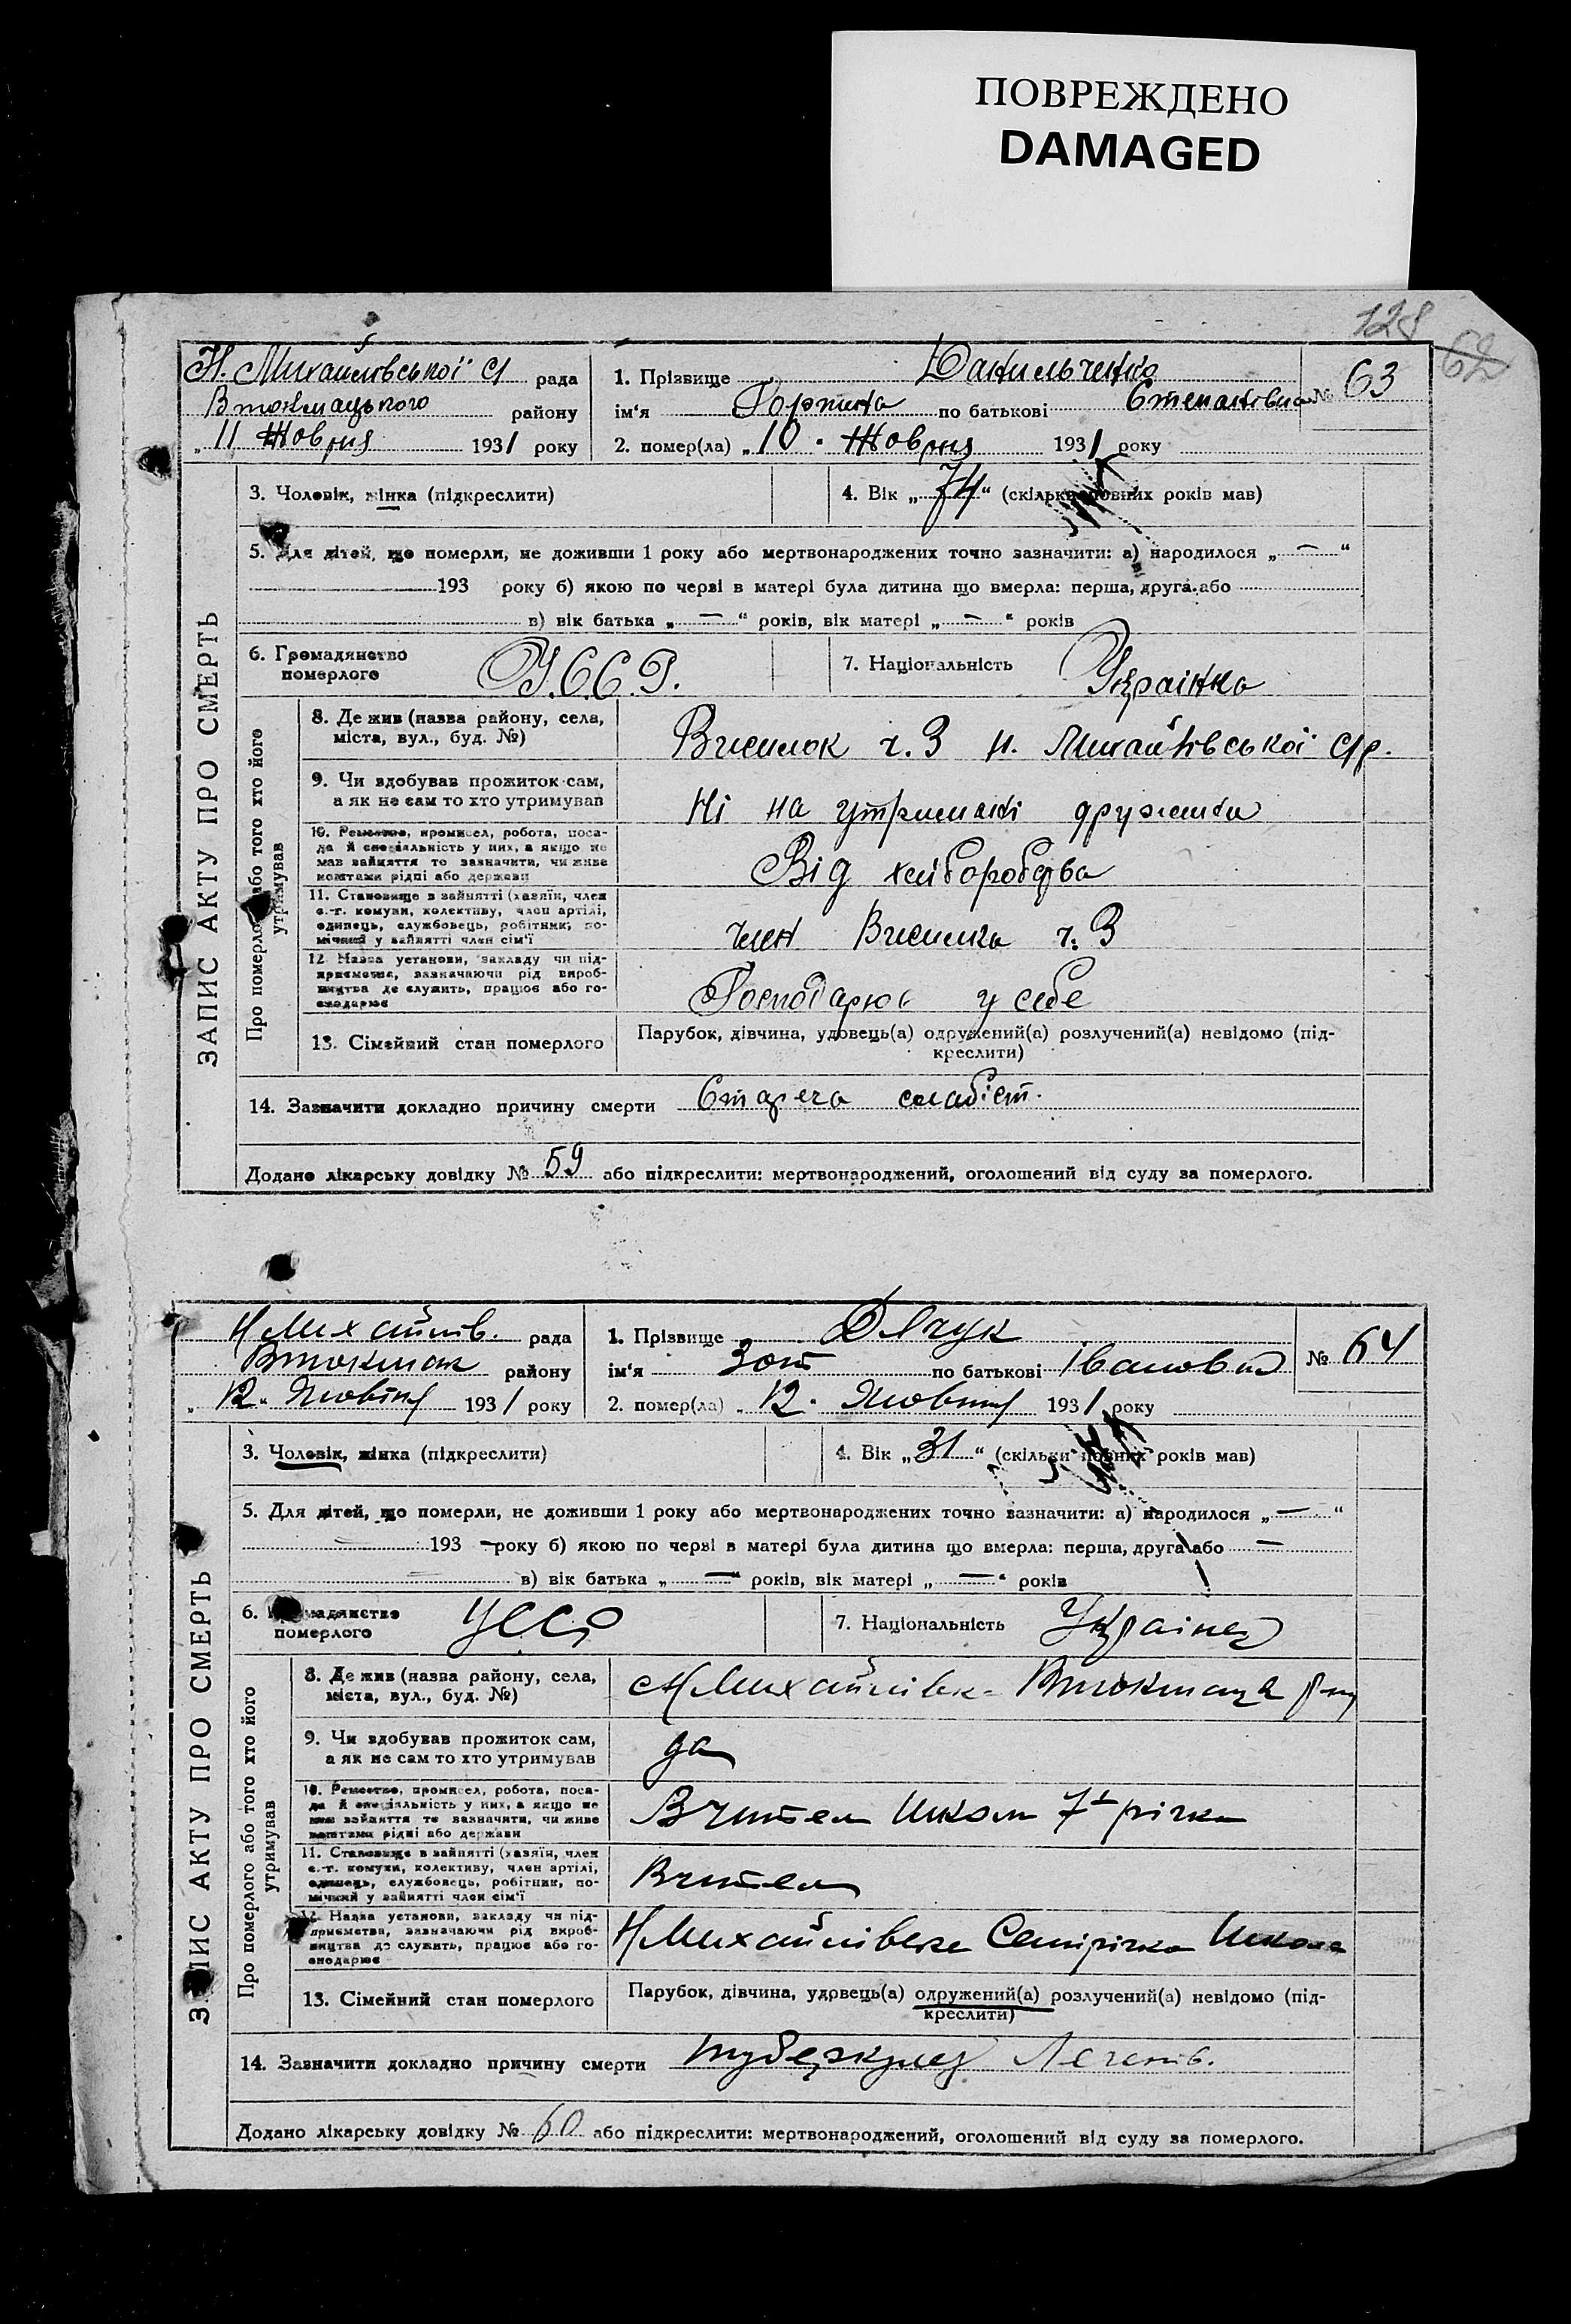 ПОВРЕЖДЕНО
DAMAGED
128
62
Н. Михайлівської с/ рада
Втокмацького району
„ 11 Жовтня 1931 року
1. Прізвище Данильченко
ім'я Горпина по батькові Степанівна
№ 63
2. помер(ла) „ 10 . Жовтня 1931 року
3. Чоловік, жінка (підкреслити)
4. Вік „ 74 “ (скільки повних років мав)
5. Для дітей, що померли, не доживши 1 року або мертвонароджених точно зазначити: а) народилося „ — “
193 року б) якою по черзі в матері була дитина що вмерла: перша, друга або
в) вік батька „ — “ років, вік матері „ — “ років
6. Громадянство
померлого
У.С.С.Р.
7. Національність Українка
ЗАПИС АКТУ ПРО СМЕРТЬ
Про померлого або того хто його
утримував
8. Де жив (назва району, села,
міста, вул., буд. №)
Висилок ч. 3 Н. Михайлівської с/р.
9. Чи здобував прожиток сам,
а як не сам то хто утримував
Ні на утримані
10. Ремество, промисел, робота, поса-
да й спеціяльність у них, а якщо не
мав зайняття то зазначити, чи живе
коштами рідні або держави
Від хліборобства
11. Становище в зайнятті (хазяїн, член
с.-г. комуни, колективу, член артілі,
одинець, службовець, робітник, по-
мічний у зайнятті член сім'ї
член Висилка ч. 3
12. Назва установи, закладу чи під-
приємства, зазначаючи рід вироб-
ництва де служить, працює або го-
сподарює
Господарює у себе
13. Сімейний стан померлого
Парубок, дівчина, удовець(а) одружений(а) розлучений(а) невідомо (під-
креслити)
14. Зазначити докладно причину смерти Стареча слабіст.
Додано лікарську довідку № 59 або підкреслити: мертвонароджений, оголошений від суду за померлого.
Н Михайлів. рада
Втокмак району
„ 12 “ Жовтня 1931 року
1. Прізвище
ім'я Зот по батькові Іванович
№ 64
2. помер(ла) „ 12 . Жовтня 1931 року
3. Чоловік, жінка (підкреслити)
4. Вік „ 31 “ (скільки повних років мав)
5. Для дітей, що померли, не доживши 1 року або мертвонароджених точно зазначити: а) народилося „ — “
193 — року б) якою по черзі в матері була дитина що вмерла: перша, друга або —
в) вік батька „ — “ років, вік матері „ — “ років
6. Громадянство
померлого
УССР
7. Національність Українец
ЗАПИС АКТУ ПРО СМЕРТЬ
Про померлого або того хто його
утримував
8. Де жив (назва району, села,
міста, вул., буд. №)
Н Михайлівк-
9. Чи здобував прожиток сам,
а як не сам то хто утримував
да
10. Ремество, промисел, робота, поса-
да й спеціяльність у них, а якщо не
мав зайняття то зазначити, чи живе
коштами рідні або держави
Вчитель Школи 7
11. Становище в зайнятті (хазяїн, член
с.-г. комуни, колективу, член артілі,
одинець, службовець, робітник, по-
мічний у зайнятті член сім'ї
Вчитель
12. Назва установи, закладу чи під-
приємства, зазначаючи рід вироб-
ництва де служить, працює або го-
сподарює
Н Михайлівська Семірічка Школа
13. Сімейний стан померлого
Парубок, дівчина, удовець(а) одружений(а) розлучений(а) невідомо (під-
креслити)
14. Зазначити докладно причину смерти туберкулез Легенів.
Додано лікарську довідку № 60 або підкреслити: мертвонароджений, оголошений від суду за померлого.